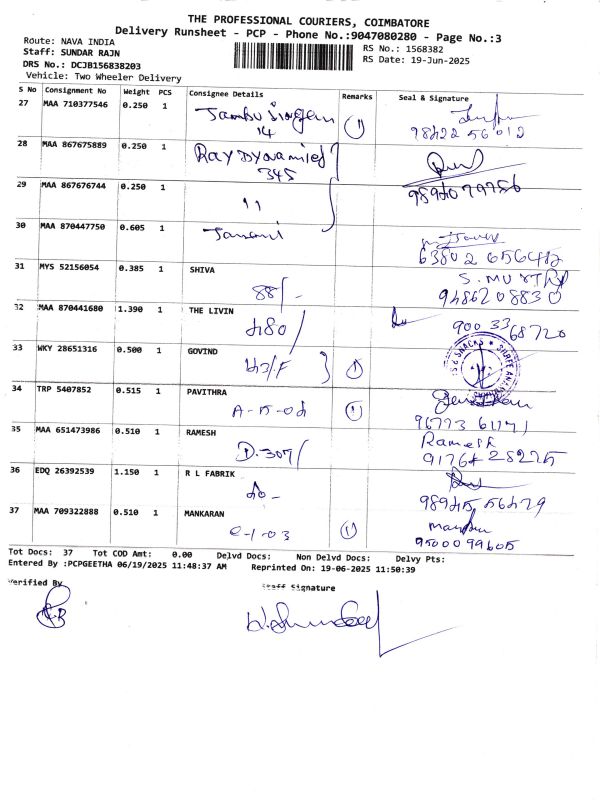 THE PROFESSIONAL COURIERS, COIMBATORE
Delivery Runsheet - PCP - Phone No.:9047080280 - Page No.:3
Route: NAVA INDIA
Staff: SUNDAR RAJN
RS No.: 1568382
DRS No.: DCJB156838203
RS Date: 19-Jun-2025
Vehicle: Two Wheeler Delivery
S No Consignment No Weight PCS Consignee Details Remarks Seal & Signature
27 MAA 710377546 0.250 1
14
1
98422 56012
28 MAA 867675889 0.250 1
345
29 MAA 867676744 0.250 1
11
30 MAA 870447750 0.605 1 Janani
31 MYS 52156054 0.385 1 SHIVA
88/-
9486208830
32 MAA 870441680 1.390 1 THE LIVIN
480/
900 33 68720
33 WKY 28651316 0.500 1 GOVIND
H3/F 1
34 TRP 5407852 0.515 1 PAVITHRA
1
35 MAA 651473986 0.510 1 RAMESH
D-307/
Ramesh
36 EDQ 26392539 1.150 1 R L FABRIK
37 MAA 709322888 0.510 1 MANKARAN
C-1-03 1
9500099605
Tot Docs: 37 Tot COD Amt: 0.00 Delvd Docs: Non Delvd Docs: Delvy Pts:
Entered By :PCPGEETHA 06/19/2025 11:48:37 AM Reprinted On: 19-06-2025 11:50:39
Verified By
Staff Signature